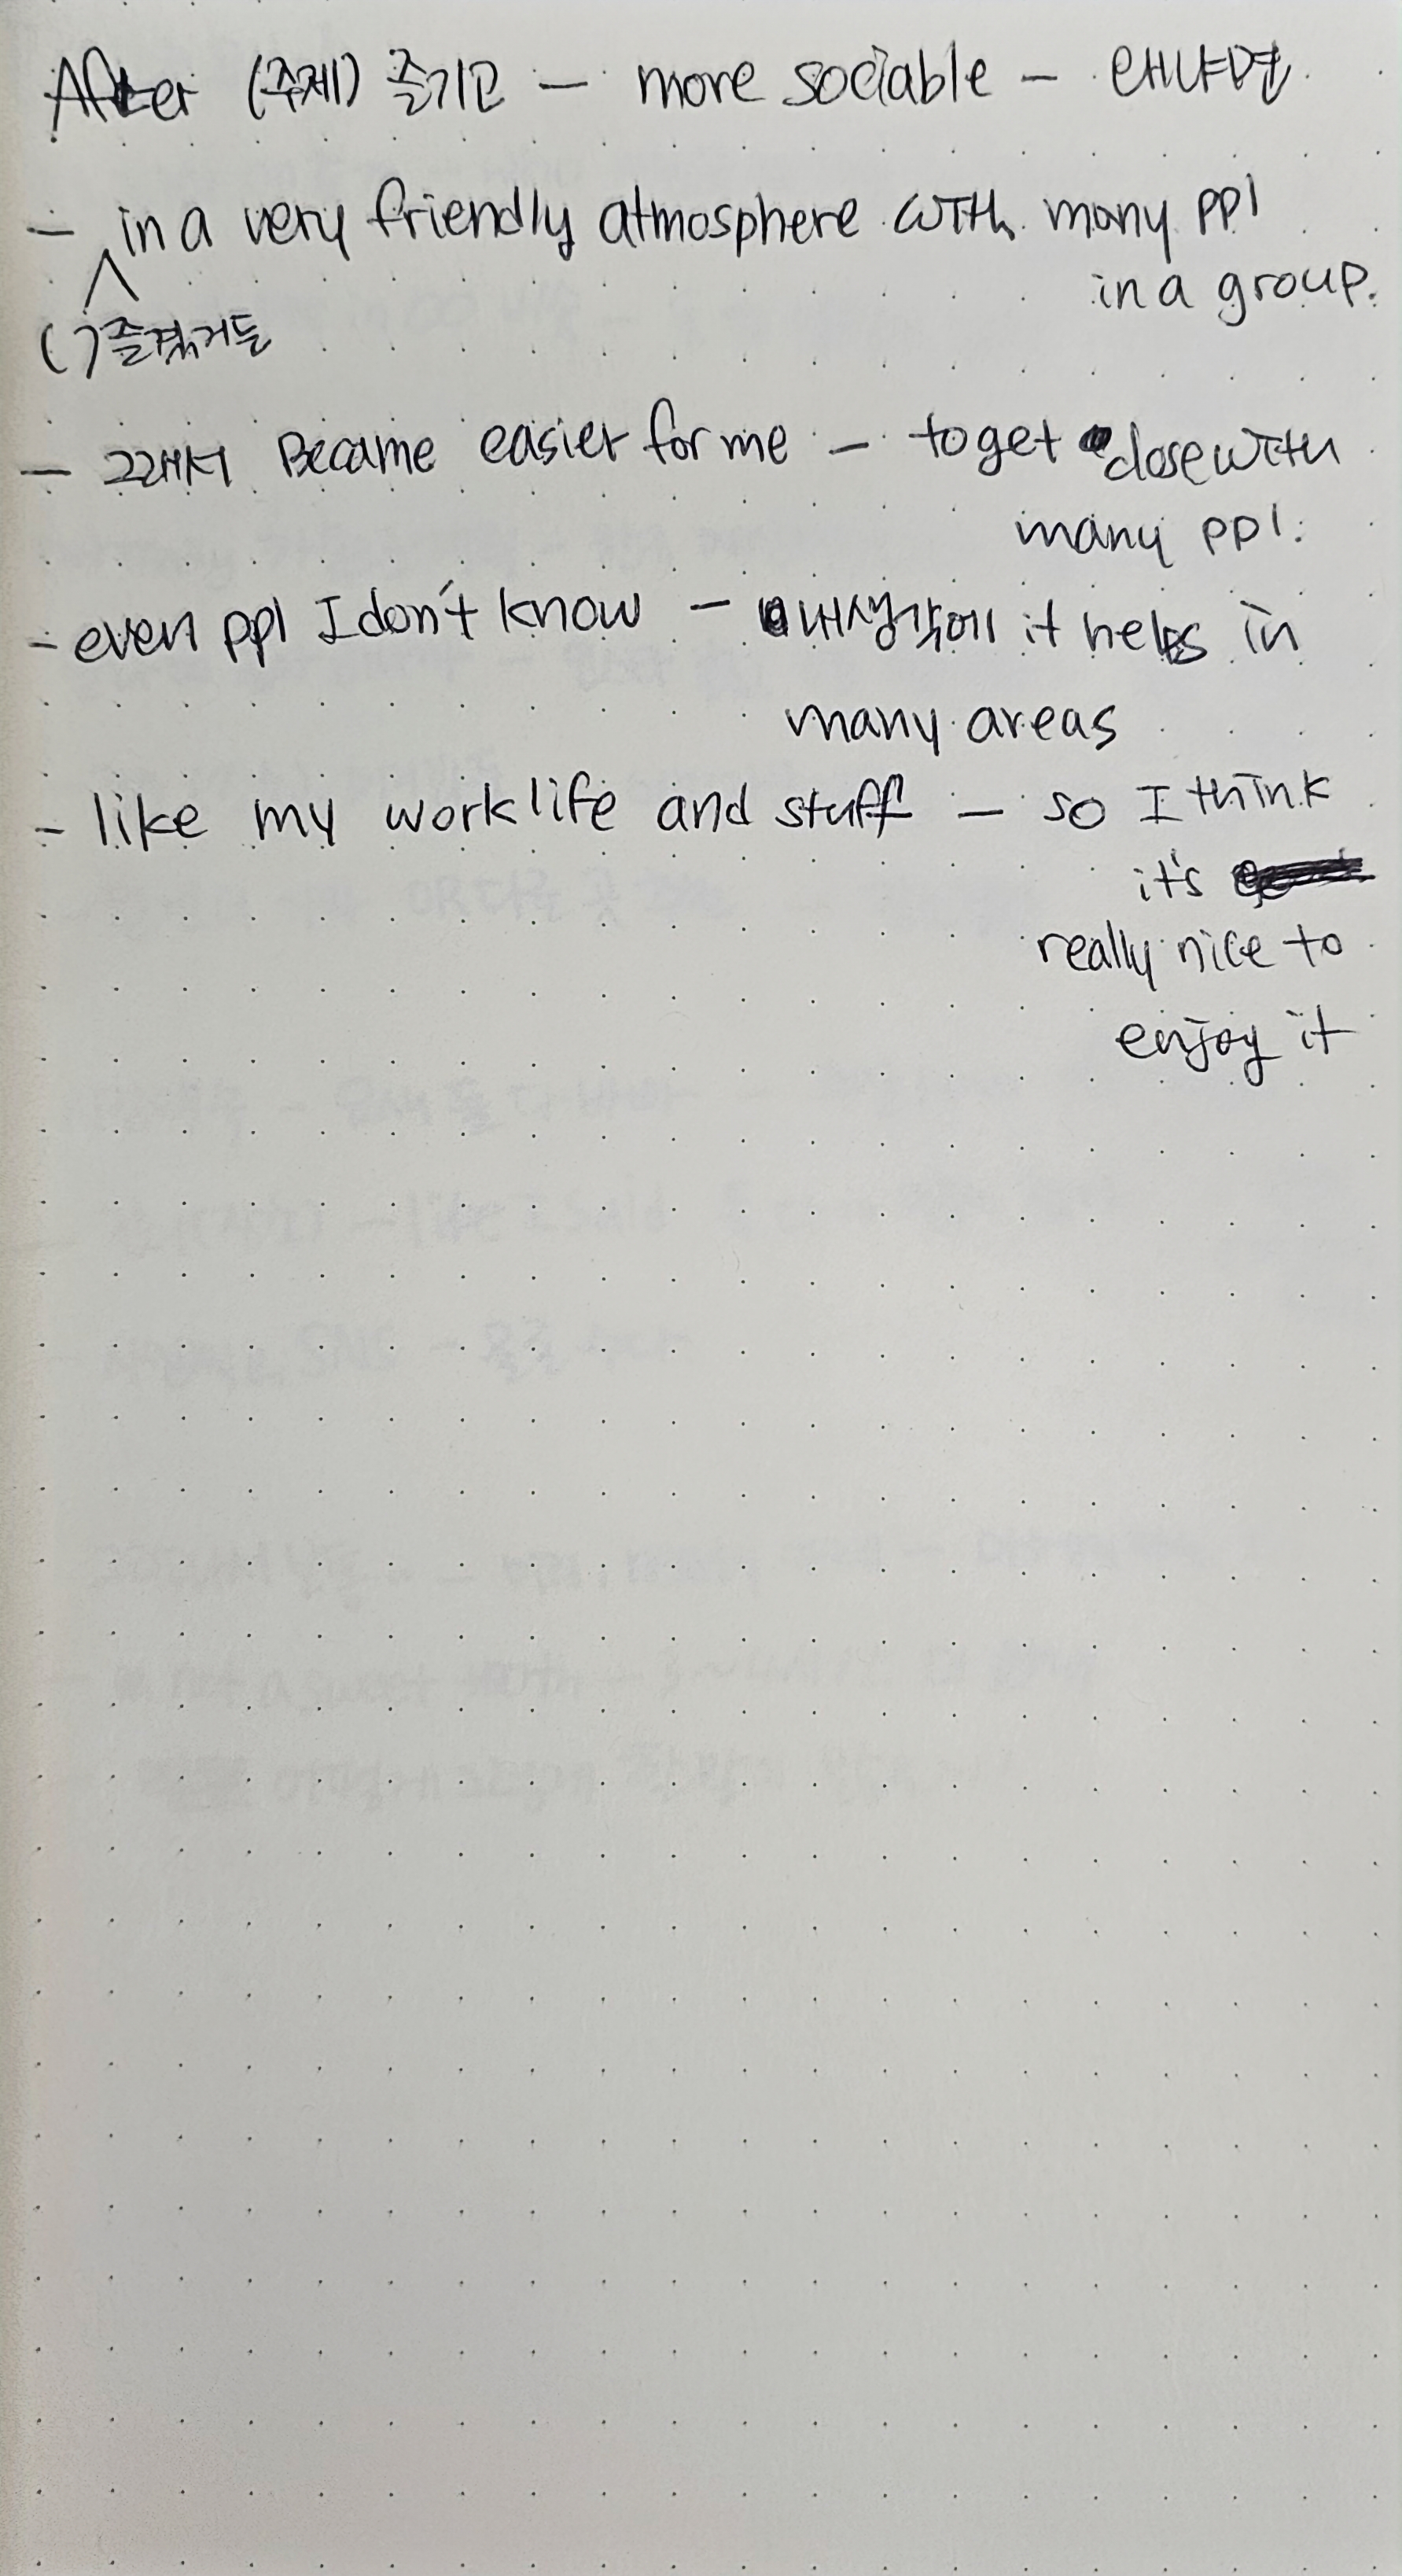 After (주제) 즐기고 - more sociable - 왜냐면
- in a very friendly atmosphere with many ppl
in a group.
( ) 즐겼거든
- 그래서 Became easier for me - to get close with
many ppl.
- even ppl I don't know - 내생각에 it helps in
many areas
- like my work life and stuff - so I think
it's
really nice to
enjoy it